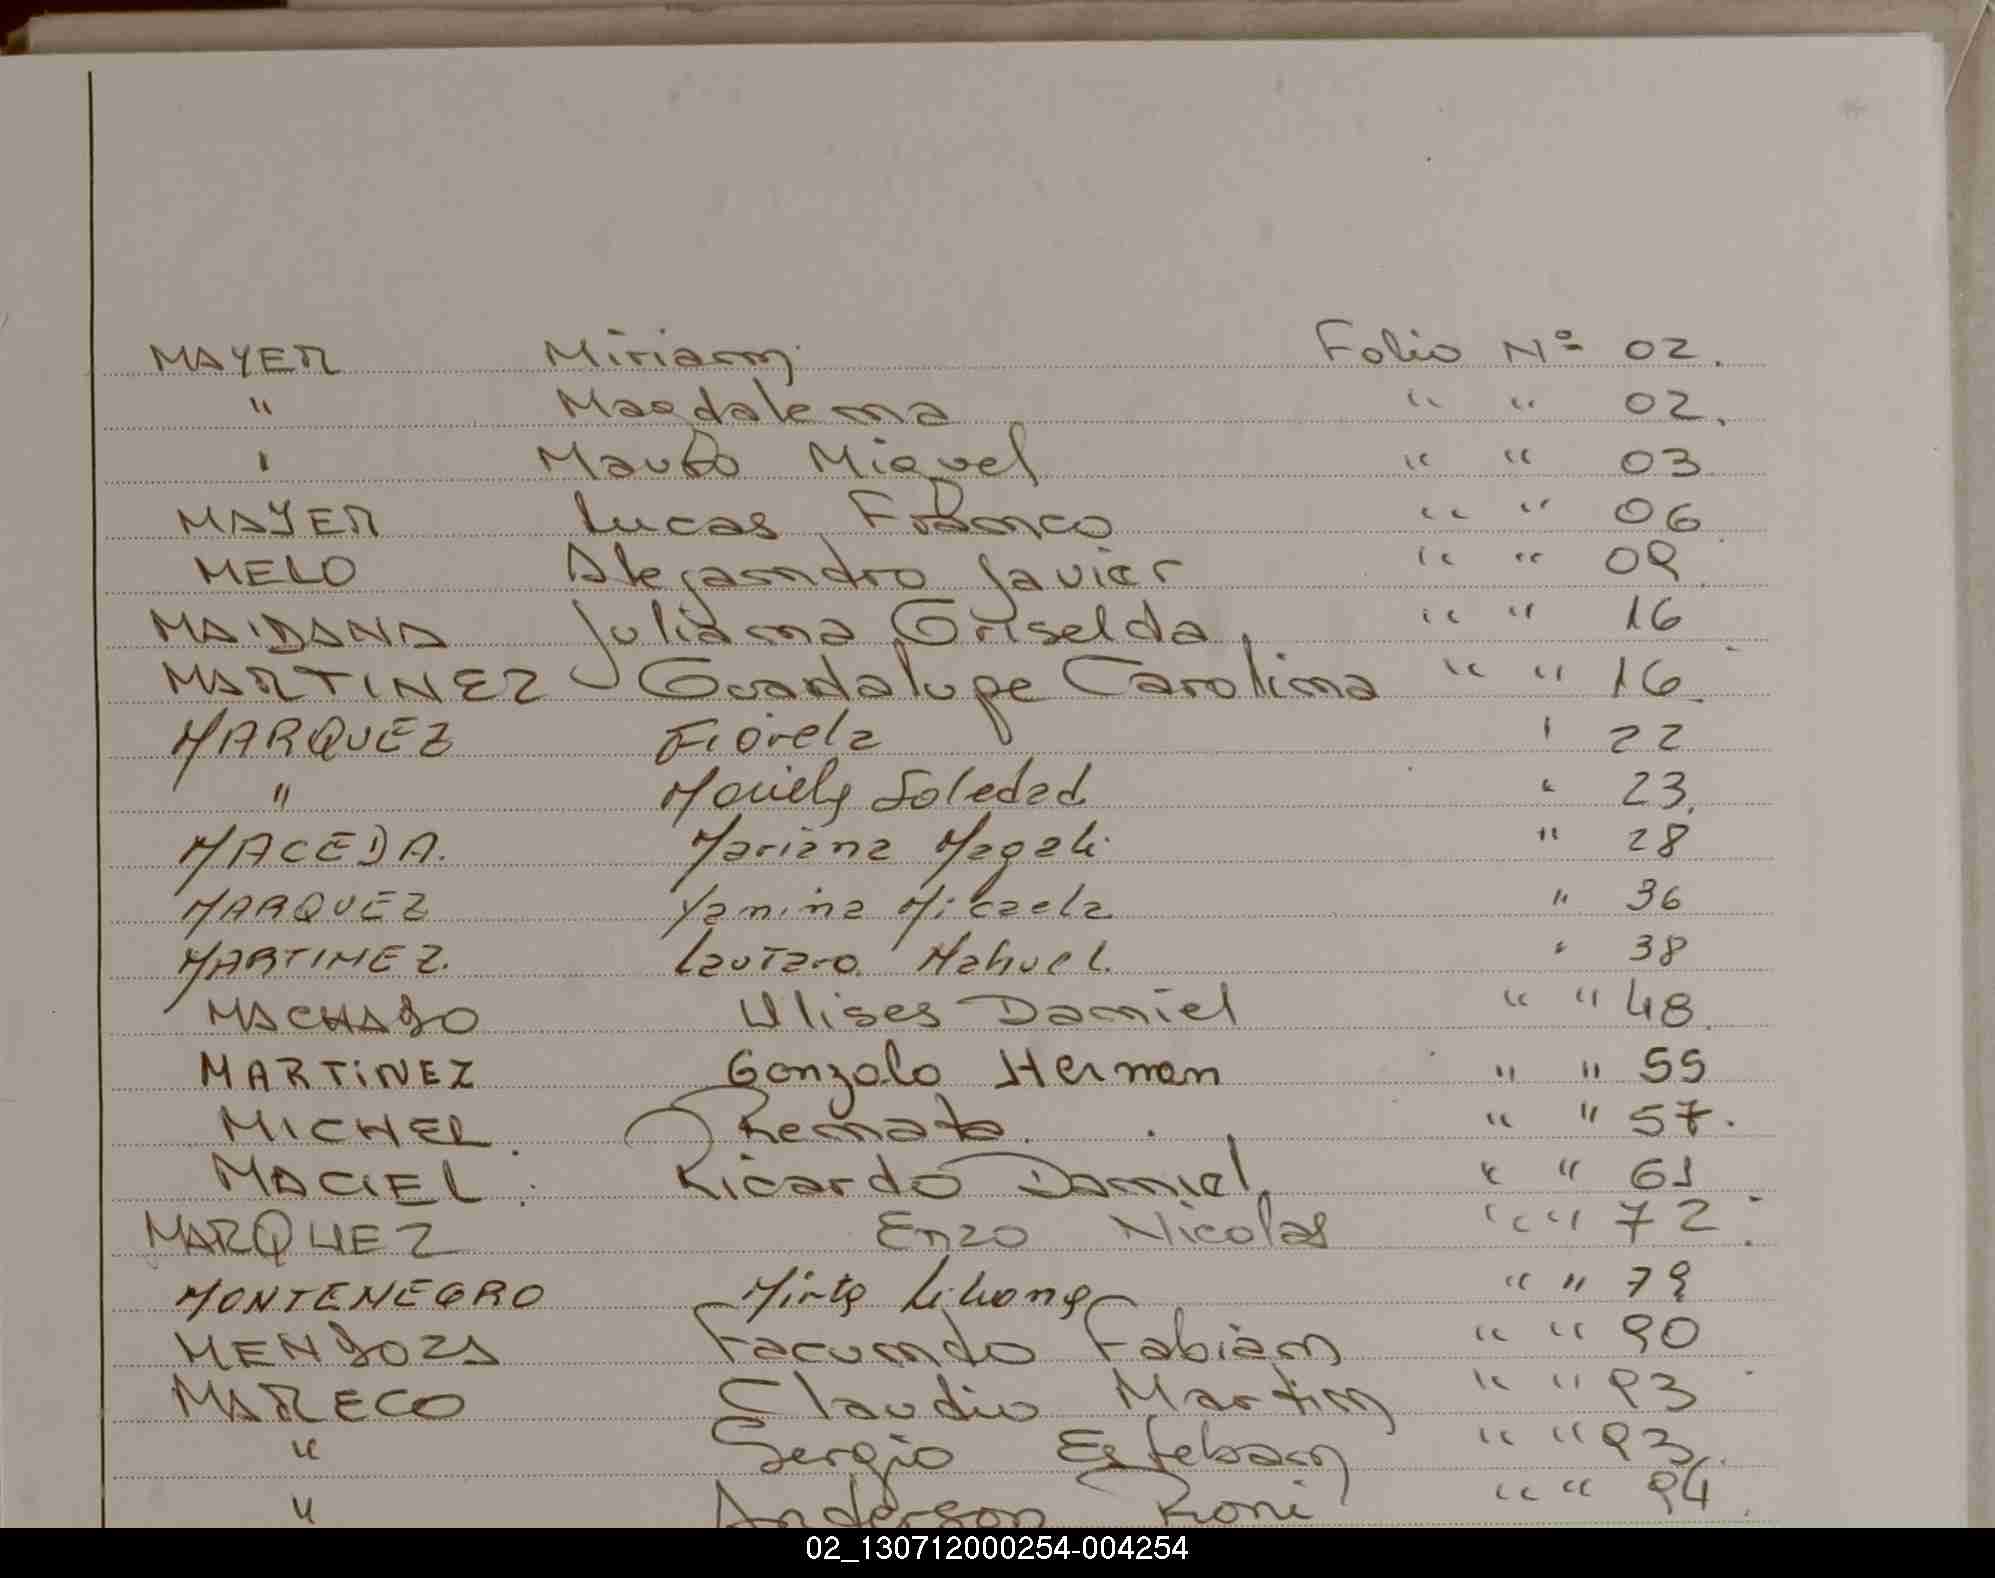 MAYER Miriam. Folio Nº 02.
" Magdalena " " 02.
" Mauro Miguel " " 03
MAYER Lucas Franco " " 06
MELO Alejandro Javier " " 09
MAIDANA Juliana Griselda " " 16
MARTINEZ Guadalupe Carolina " " 16
MARQUEZ Fiorela ' 22
" Mariely Soledad " 23.
MACEDA. Mariana Magali " 28
MARQUEZ Yanina Micaela " 36
MARTINEZ. Lautaro Nahuel. " 38
MACHADO Ulises Daniel " " 48.
MARTINEZ Gonzalo Hernan " " 55
MICHEL. Renata. " " 57.
MACIEL. Ricardo Daniel " " 61
MARQUEZ Enzo Nicolas " " 72
MONTENEGRO Mirta Liliana " " 79
MENDOZA Facundo Fabián " " 90
MARECO Claudio Martin " " 93
" Sergio Esteban " " 93.
" Anderson Roni " " 94.
02_130712000254-004254